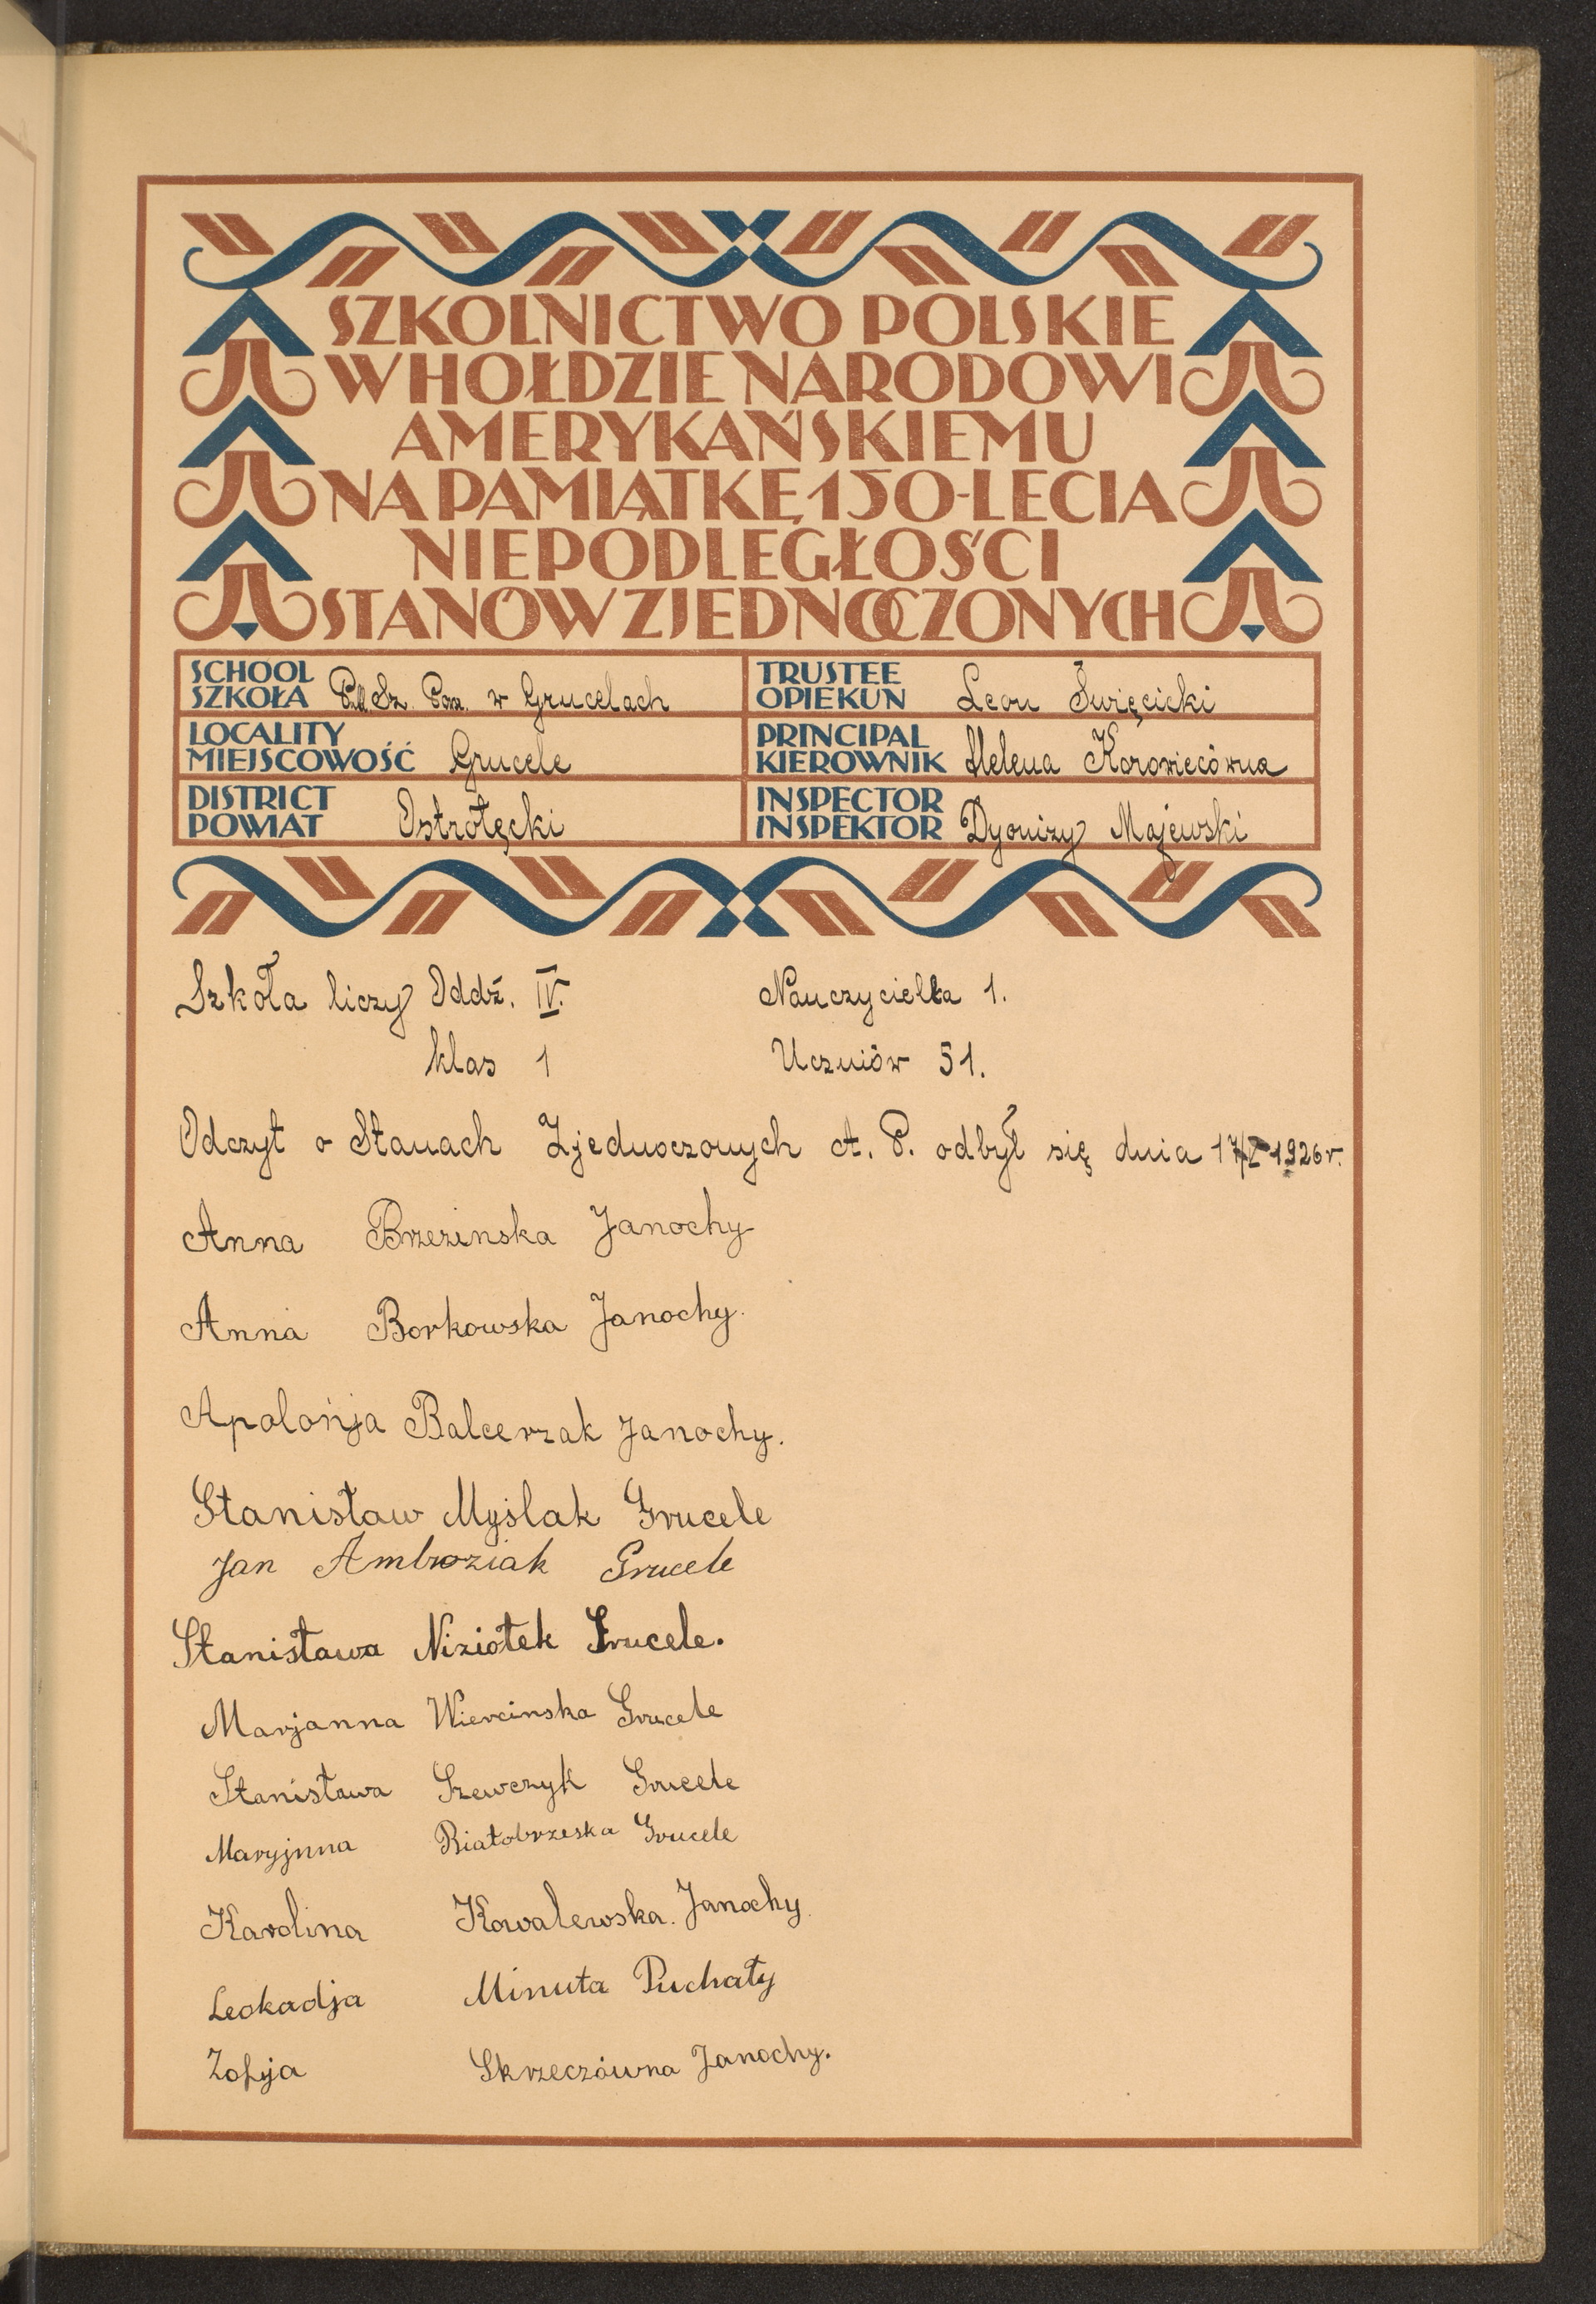 SZKOLNICTWO POLSKIE
W HOŁDZIE NARODOWI
AMERYKAŃSKIEMU
NA PAMIĄTKĘ 150-LECIA
NIEPODLEGŁOŚCI
STANÓW ZJEDNOCZONYCH
SCHOOL
SZKOŁA Publ. Sz. Pow. w Grucelach
TRUSTEE
OPIEKUN Leon Święcicki
LOCALITY
MIEJSCOWOŚĆ Grucele
PRINCIPAL
KIEROWNIK Helena Korowiecówna
DISTRICT
POWIAT Ostrołęcki
INSPECTOR
INSPEKTOR Dyonizy Majewski
Szkoła liczy Oddź. IV. Nauczycielka 1.
klas 1 Uczniów 51.
Odczyt o Stanach Zjednoczonych A. P. odbył się dnia 1926 r.
Anna Brzezinska Janochy
Anna Borkowska Janochy.
Apolońja Balcerzak Janochy.
Stanisław Myślak Grucele
Jan Ambroziak Grucele
Stanisława Niziołek Grucele.
Marjanna Wiercinska Grucele
Stanisława Szewczyk Grucele
Maryjnna Białobrzeska Grucele
Karolina Kowalewska. Janochy
Leokadja Minuta Puchały
Zofyja Skrzeczówna Janochy.